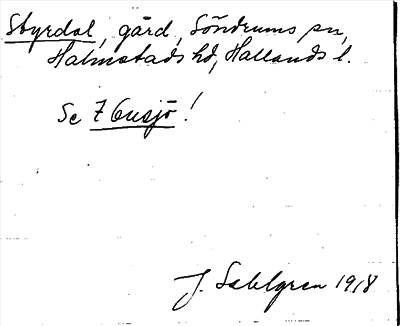 Styrdal, gård, Söndrums sn,
Halmstads hd, Hallands l.
Se 7 Gusjö!
J. Sahlgren 1918